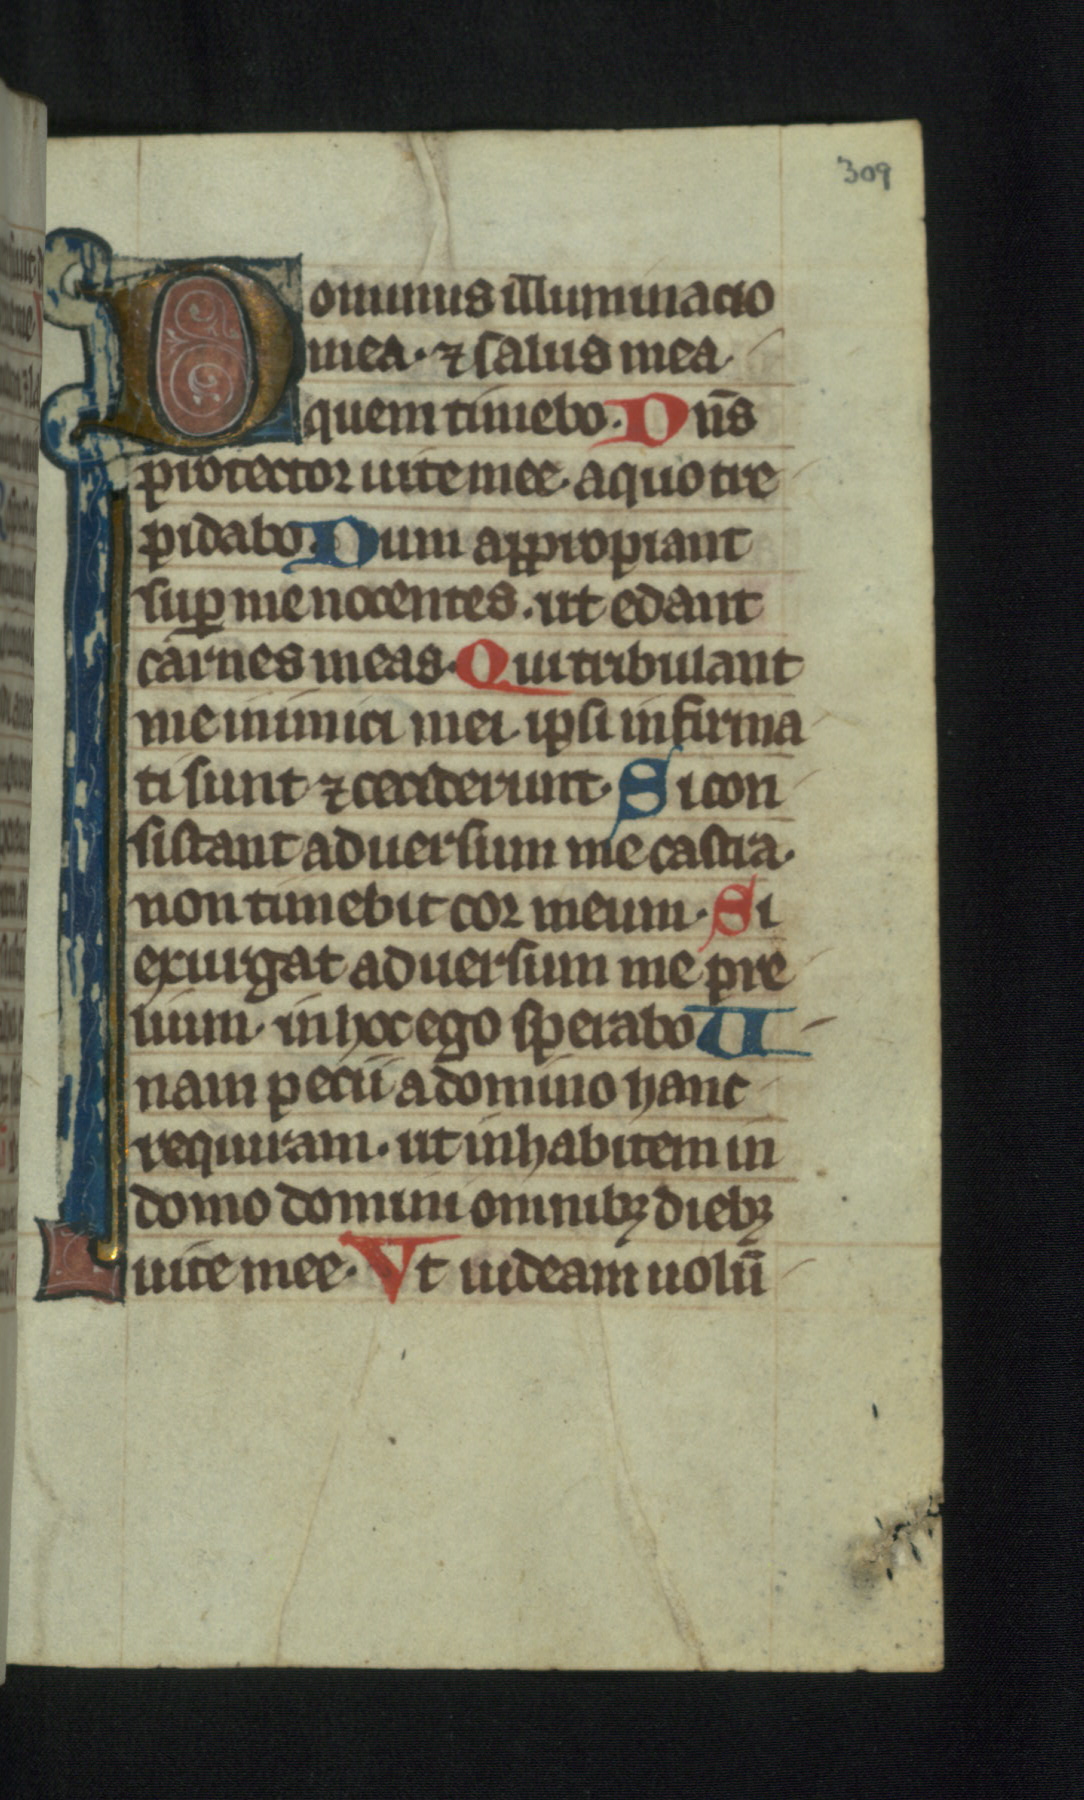 309
Dominus illuminacio
mea · ⁊ salus mea
quem timebo · Dn̄s
protector uite mee · a quo tre
pidabo · Dum appropiant
suꝑ me nocentes · ut edant
carnes meas · Qui tribulant
me inimici mei · ipsi infirma
ti sunt ⁊ ceciderunt · Si con
sistant aduersum me castra ·
non timebit cor meum · Si
exurgat aduersum me pre
lium · in hoc ego sperabo U
nam pecii a domino hanc
requiram · ut inhabitem in
domo domini omnibꝫ diebꝫ
uite mee · Vt uideam uolū